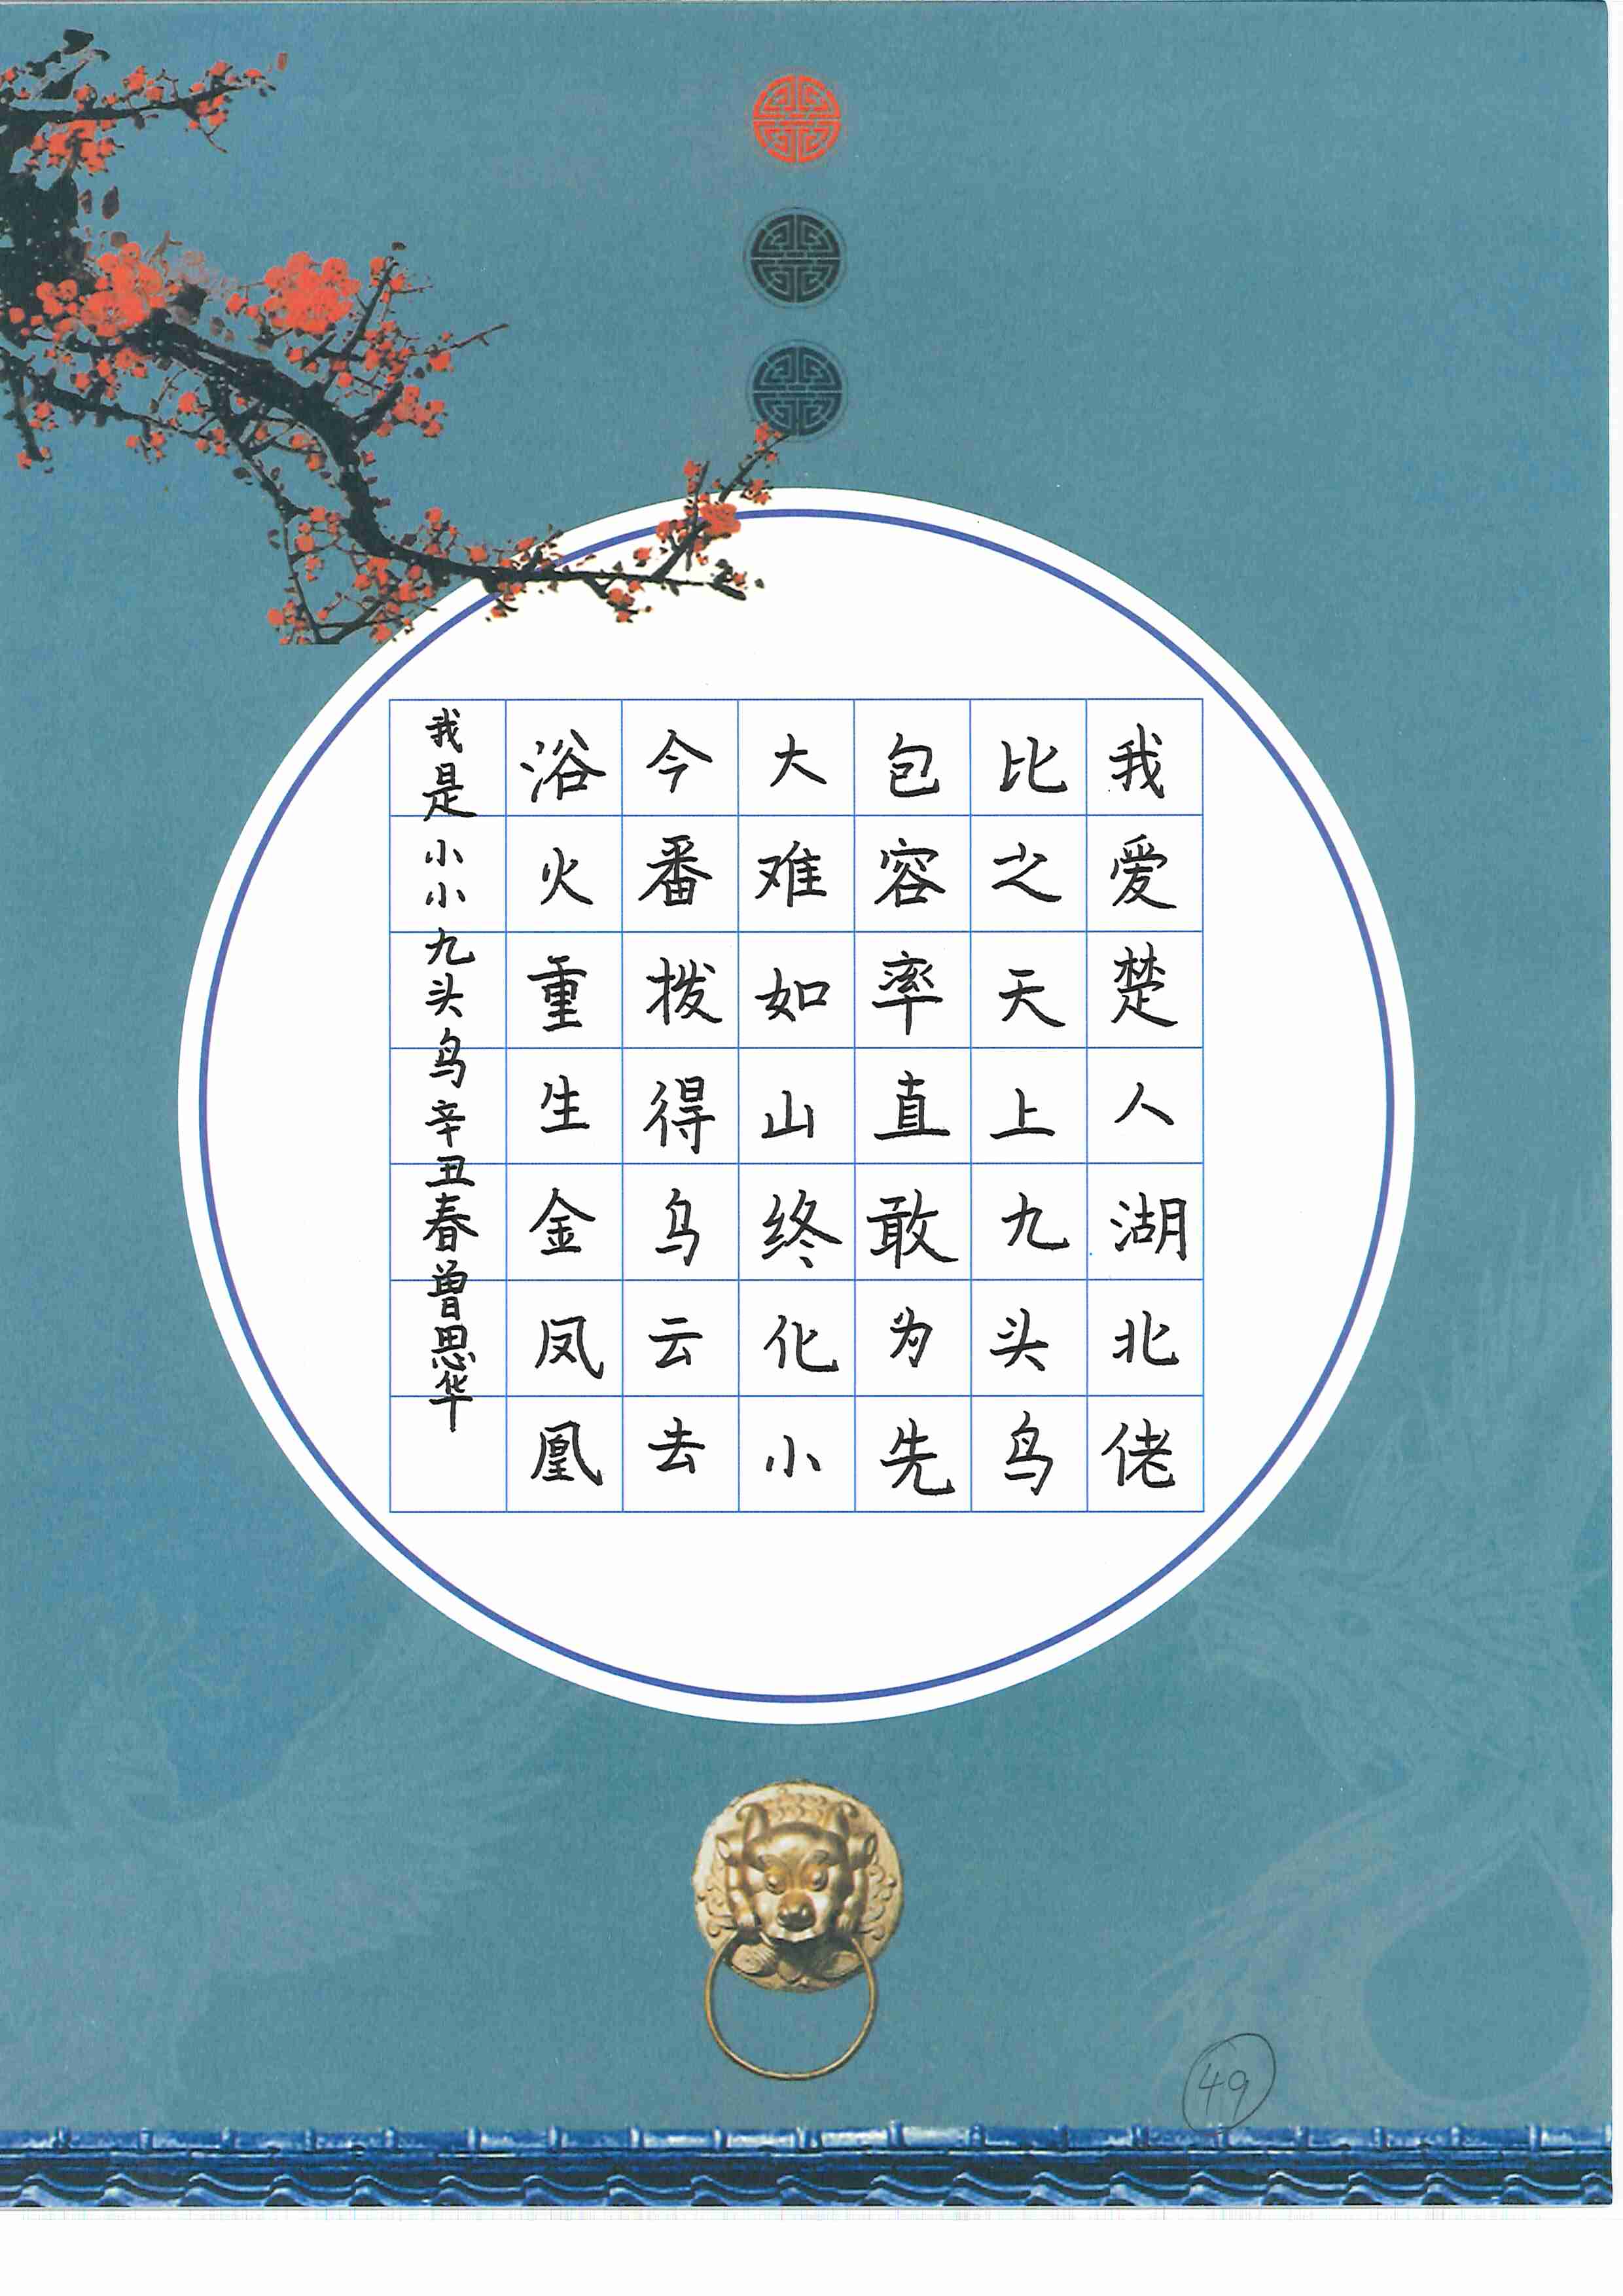 我爱楚人湖北佬
比之天上九头鸟
包容率直敢为先
大难如山终化小
今番拨得乌云去
浴火重生金凤凰
我是小小九头鸟辛丑春曾思华
49